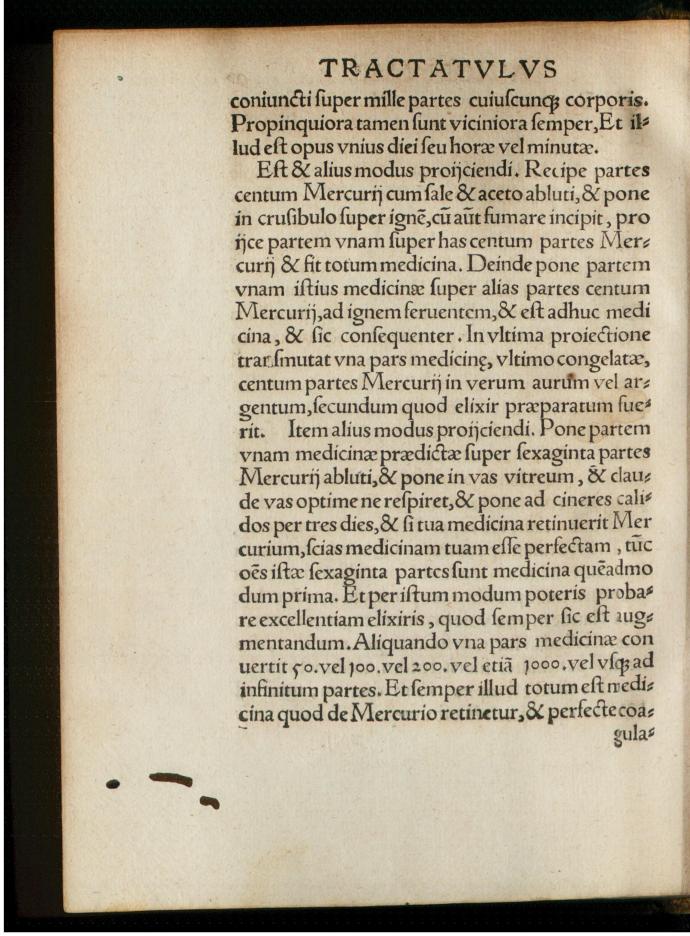 TRACTATVLVS
coniuncti ſuper mille partes cuiuſcunqꝫ corporis.
Propinquiora tamen ſunt viciniora ſemper, Et il⸗
lud eſt opus vnius diei ſeu horæ vel minutæ.
Eſt & alius modus proijciendi. Recipe partes
centum Mercurij cum ſale & aceto abluti, & pone
in cruſibulo ſuper ignē, cū aūt fumare incipit, pro
ijce partem vnam ſuper has centum partes Mer⸗
curij & fit totum medicina. Deinde pone partem
vnam iſtius medicinæ ſuper alias partes centum
Mercurij, ad ignem feruentem, & eſt adhuc medi
cina, & ſic conſequenter. In vltima proiectione
tranſmutat vna pars medicinę, vltimo congelatæ,
centum partes Mercurij in verum aurum vel ar⸗
gentum, ſecundum quod elixir præparatum fue⸗
rit. Item alius modus proijciendi. Pone partem
vnam medicinæ prædictæ ſuper ſexaginta partes
Mercurij abluti, & pone in vas vitreum, & clau⸗
de vas optime ne reſpiret, & pone ad cineres cali⸗
dos per tres dies, & ſi tua medicina retinuerit Mer
curium, ſcias medicinam tuam eſſe perfectam, tūc
oēs iſtæ ſexaginta partes ſunt medicina quēadmo
dum prima. Et per iſtum modum poteris proba⸗
re excellentiam elixiris, quod ſemper ſic eſt aug⸗
mentandum. Aliquando vna pars medicinæ con
uertit 50. vel 100. vel 200. vel etiā 1000. vel vſqꝫ ad
infinitum partes. Et ſemper illud totum eſt medi⸗
cina quod de Mercurio retinetur, & perfecte coa⸗
gula⸗